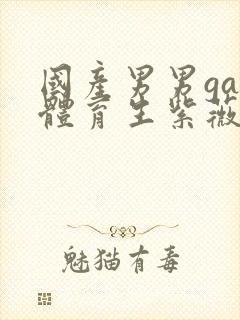 國產男男ga
體育生紫薇
魅猫有毒